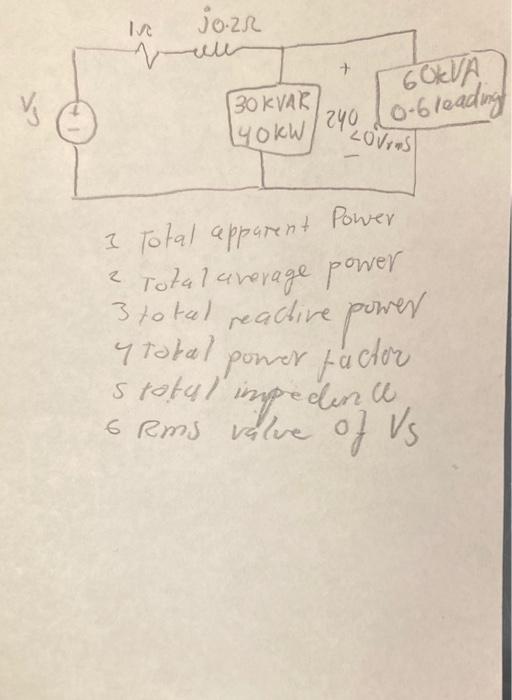 1Ω j0.2Ω
Vs + − 30KVAR 40KW + 240 <0Vrms − 60kVA 0.6 leading
1 Total apparent Power
2 Total average power
3 total reactive power
4 Total power factor
5 total impedence
6 Rms value of Vs